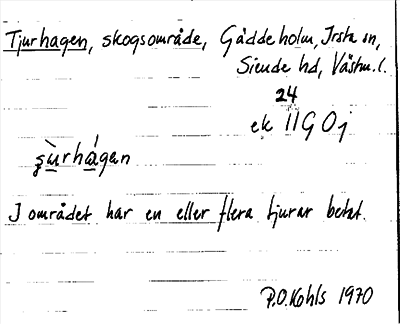 Tjurhagen, skogsområde, Gäddeholm, Irsta sn,
Siende hd, Västm. l.
24
ek 11G 0j
ʂùrhágan
I området har en eller flera tjurar betat.
P.O. Kohls 1970